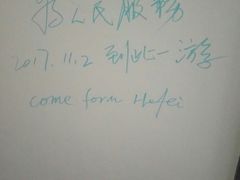 为人民服务
2017.11.2 到此一游
come form Hefei